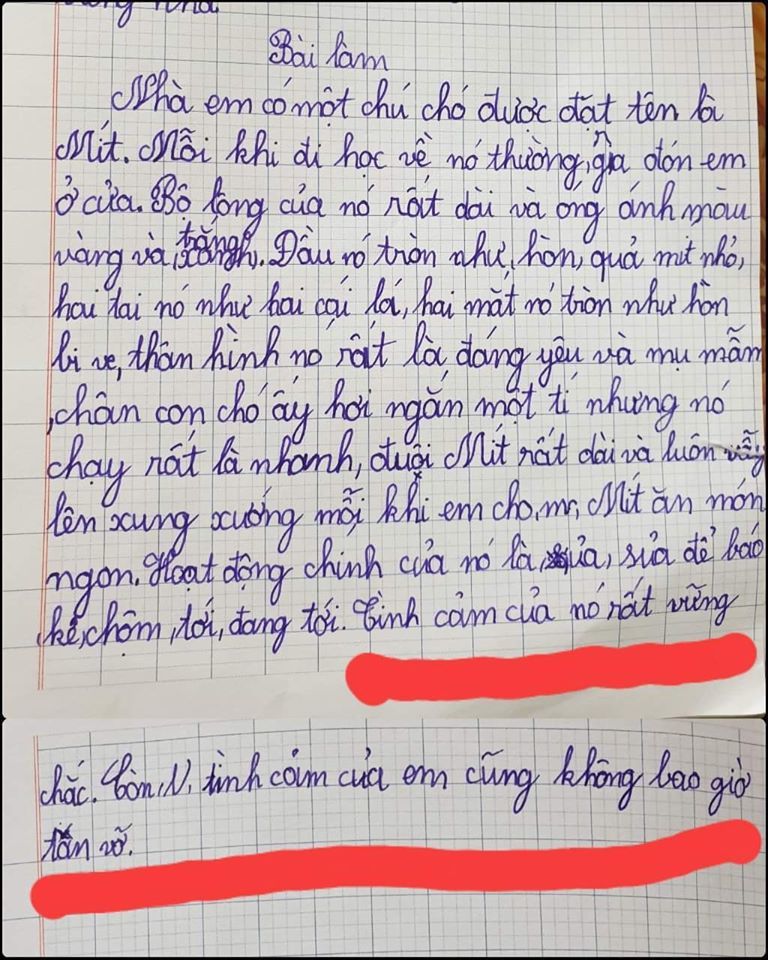 Bài làm
Nhà em có một chú chó được đặt tên là
Mít. Mỗi khi đi học về nó thường, ra đón em
ở cửa. Bộ lông của nó rất dài và óng ánh màu
vàng và, trắng. Đầu nó tròn như, hòn, quả mít nhỏ,
hai tai nó như hai cái lá, hai mắt nó tròn như hòn
bi ve, thân hình nó rất là, đáng yêu và mụ mẫm
, chân con chó ấy hơi ngắn một tí nhưng nó
chạy rất là nhanh, đuôi Mít rất dài và luôn vẫy
lên xung xuống mỗi khi em cho, mi, Mít ăn món
ngon. Hoạt động chính của nó là, sủa, sủa để báo
kẻ, chộm, tới, đang tới. Tình cảm của nó rất vững
chắc. Còn, N, tình cảm của em cũng không bao giờ
tan vỡ.